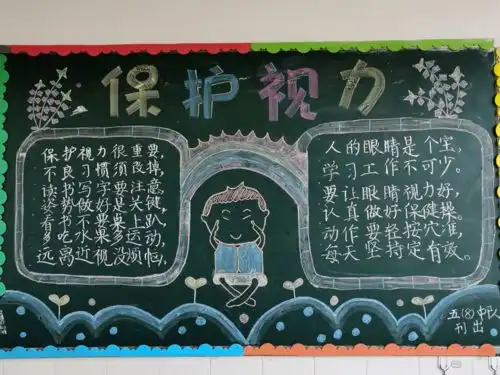 保护视力
保护视力很重要,
不良习惯须改掉
读书写字要注意
姿势做好是关键
看书不要桌上趴
多吃水果多运动,
远离近视没烦恼,
人的眼睛是个宝,
学习工作不可少。
要让眼睛视力好,
认真做好保健操。
动作要轻按穴准,
每天坚持定有效。
五(8)中队
刊出